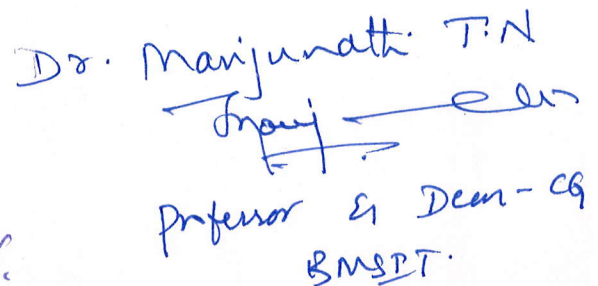 Dr. Manjunath T.N
Professor & Dean - CG
BMSIT.